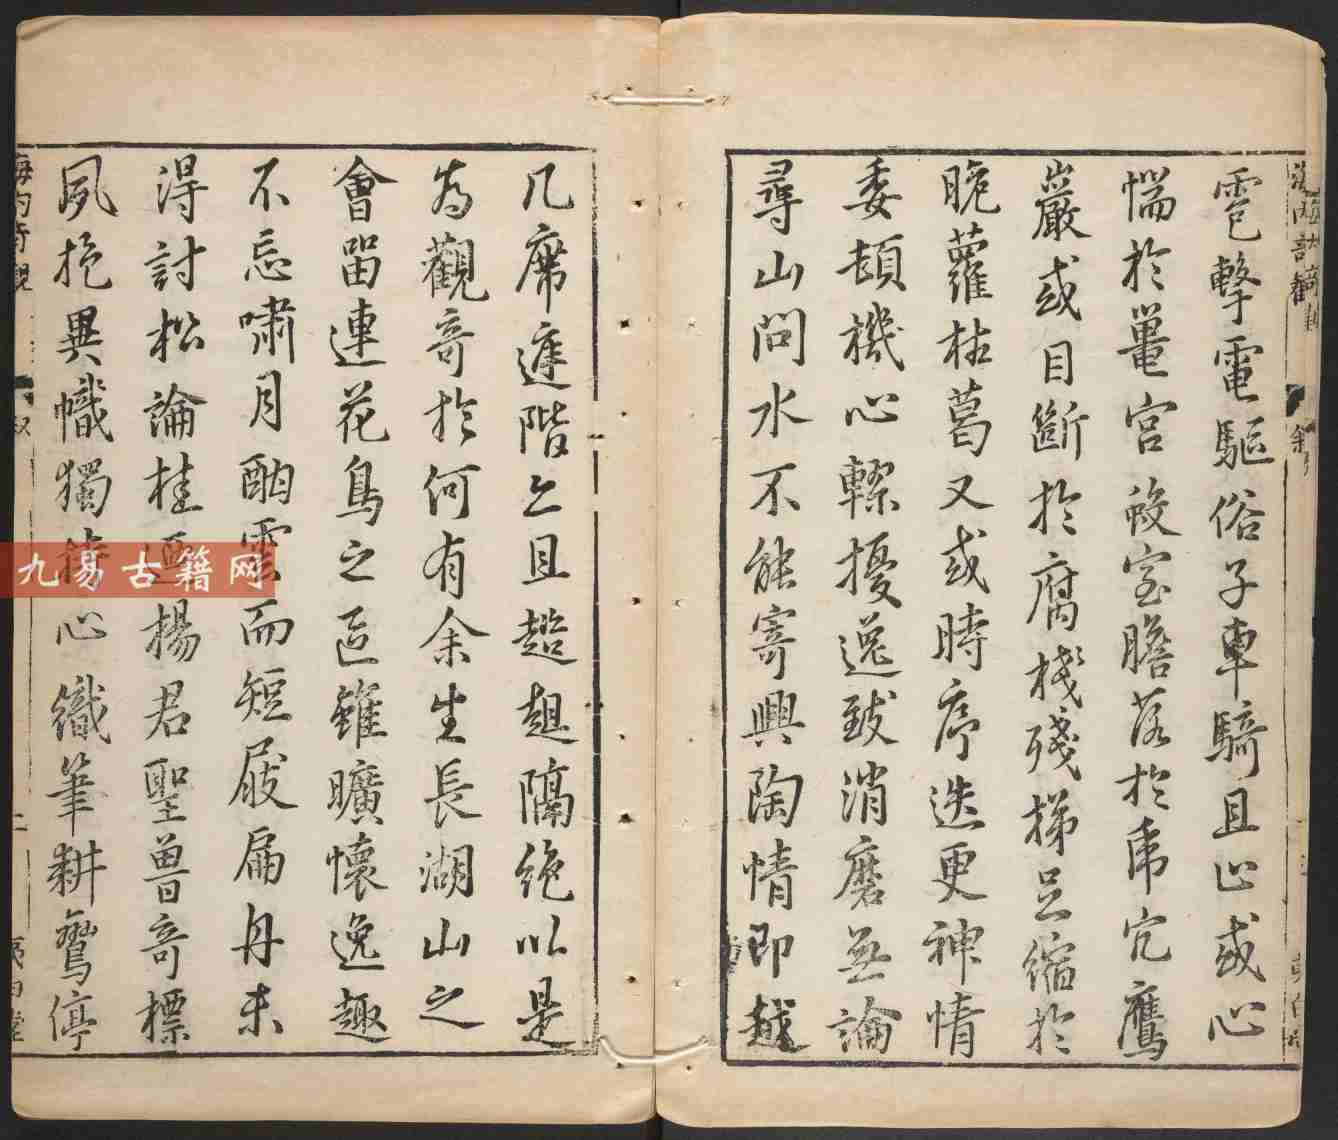 雹擊電驅俗子車騎且止或心
惴於鼉宮蛟室膽落於虎穴鷹
巖或目斷於腐棧殘梯足縮於
脆蘿枯葛又或時序迭更神情
委頓機心轇擾逸致消磨無論
尋山問水不能寄興陶情即越
几席遊階之且趑趄隔絕以是
為觀奇於何有余生長湖山之
會留連花鳥之區雖曠懷逸趣
不忘嘯月酣雲而短屐扁舟未
得討松論桂 楊君聖魯奇標
夙抱異幟獨 心織筆耕鸞停
海內奇觀
叙
二
夷白堂
九易古籍网